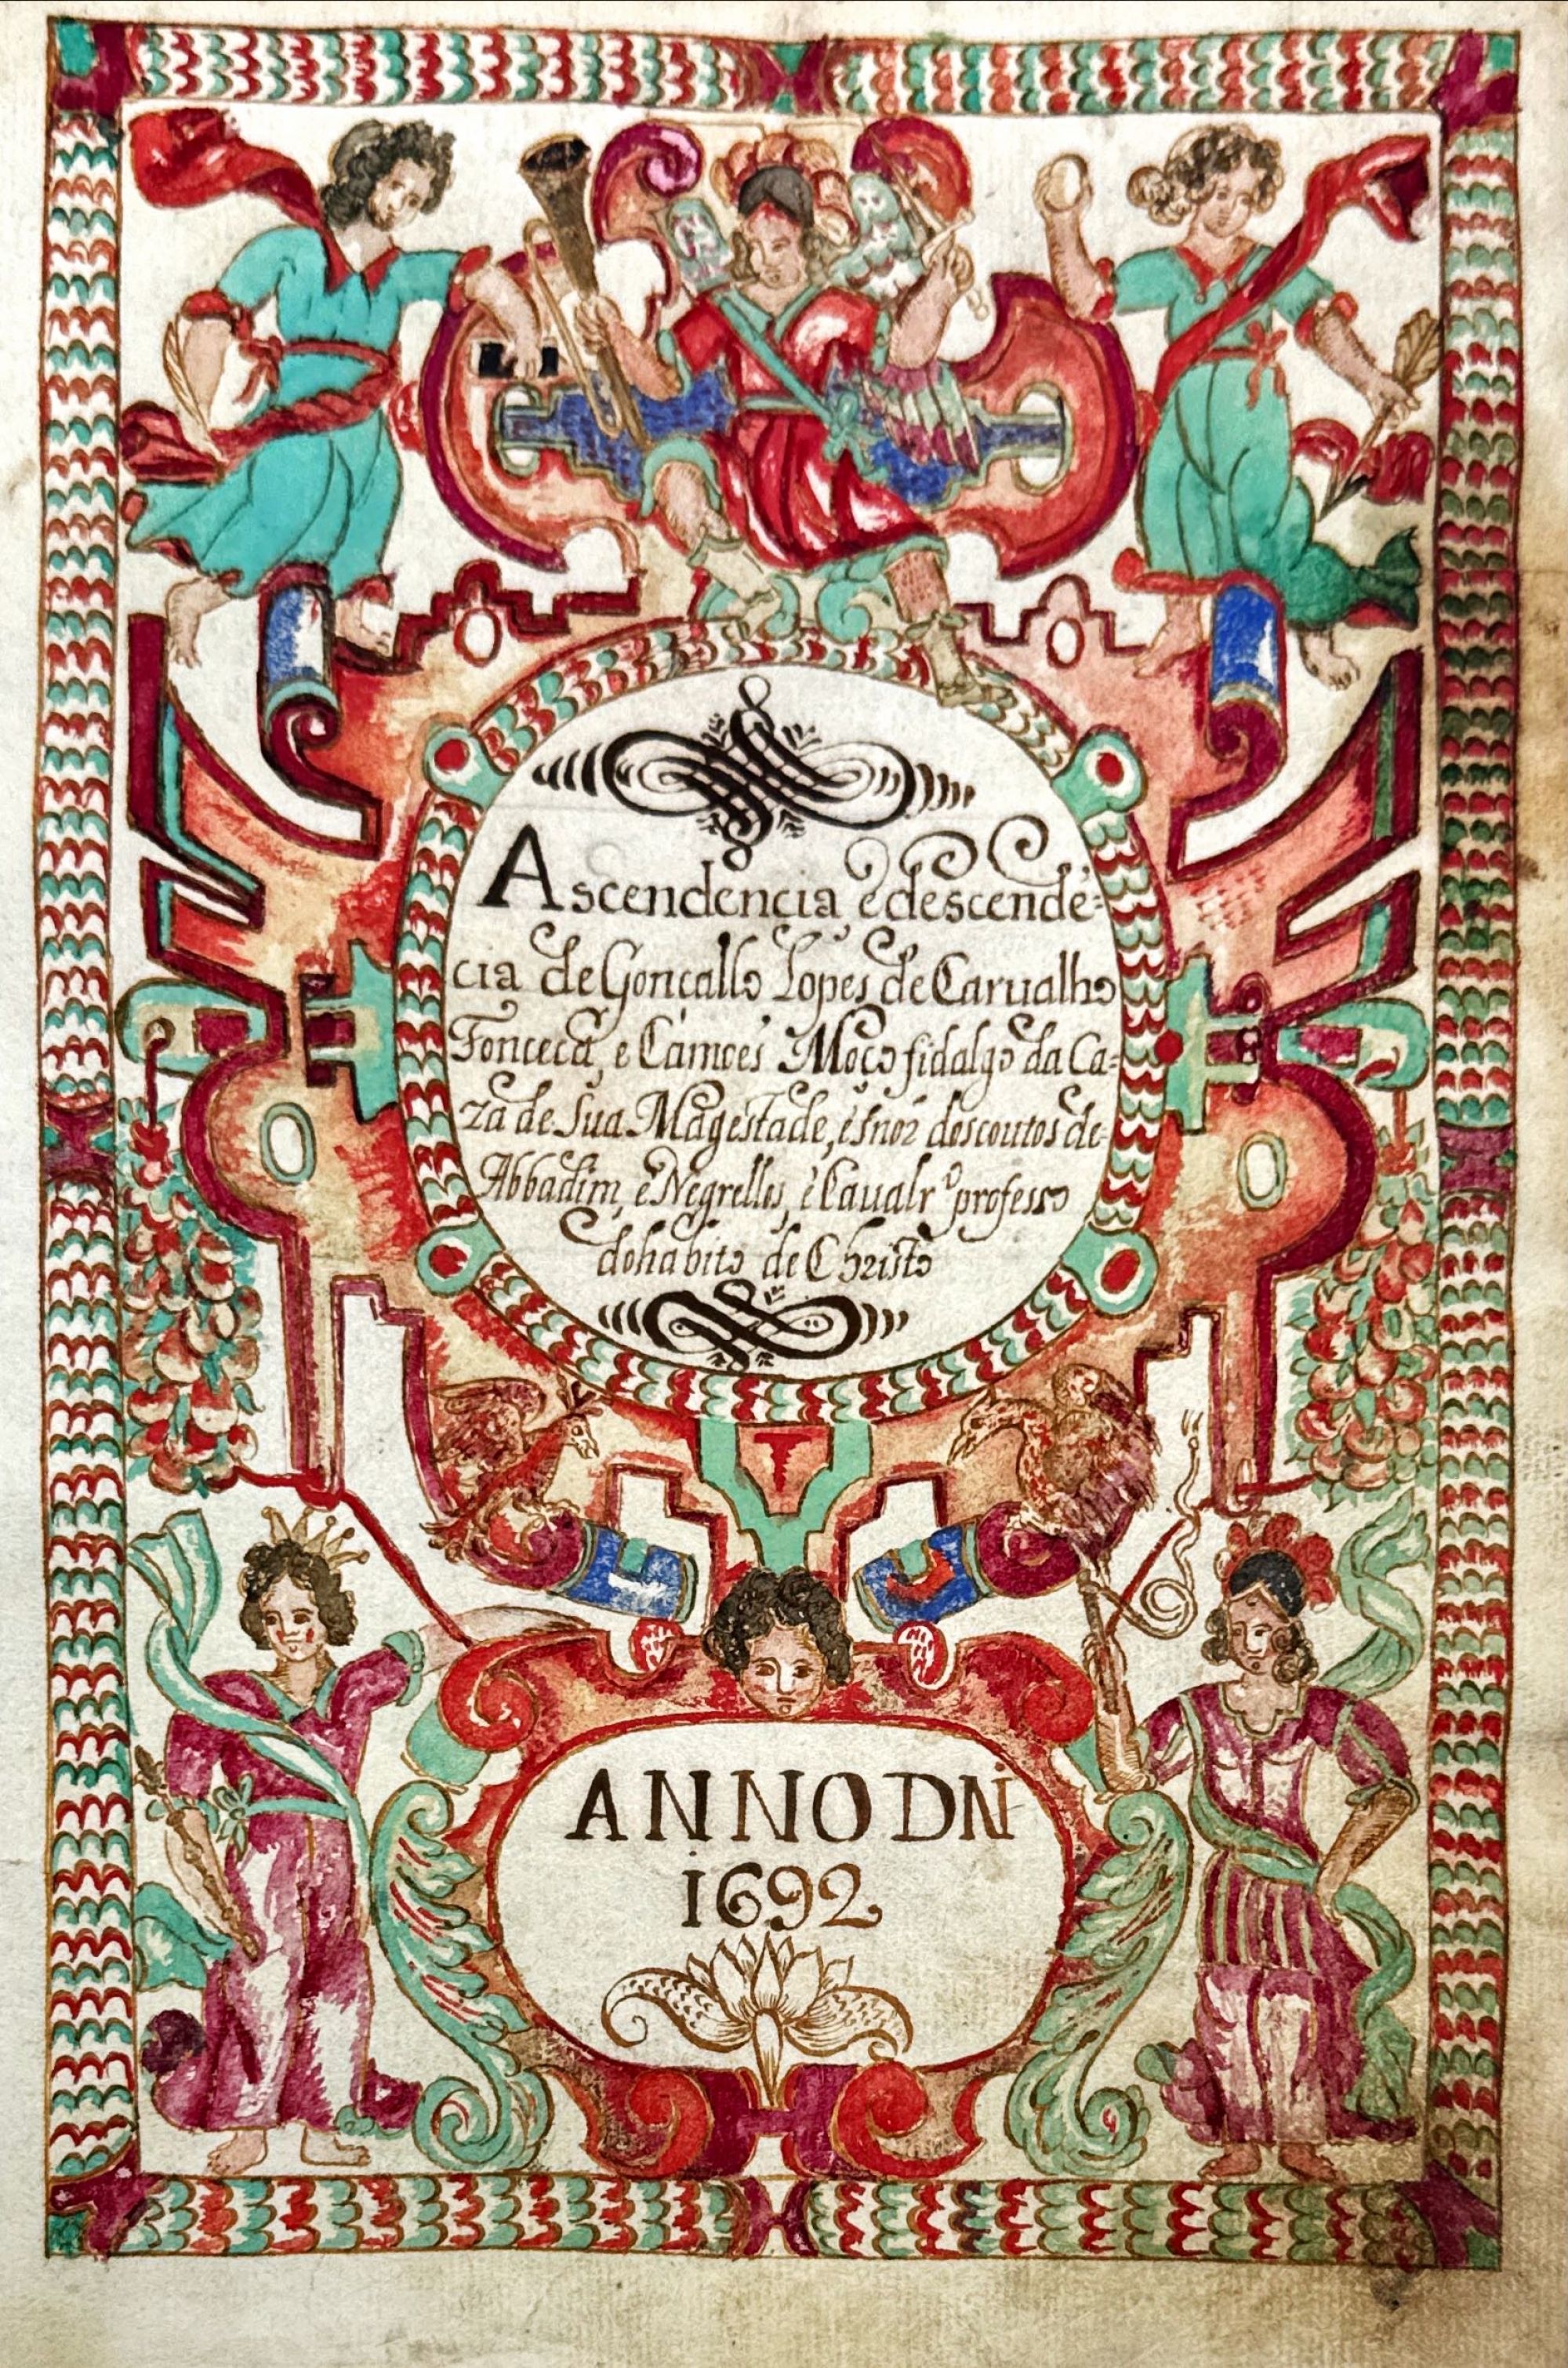 Ascendencia, e descendẽ=
cia de Goncallo Lopes de Carualho
Fonceca, e Camoes Moço fidalgo da Ca=
za de Sua Magestade, e snor doscoutos de
Abbadim, e Negrellos, e Caualr.º professo
do habito de Christo
ANNO DNI
1692